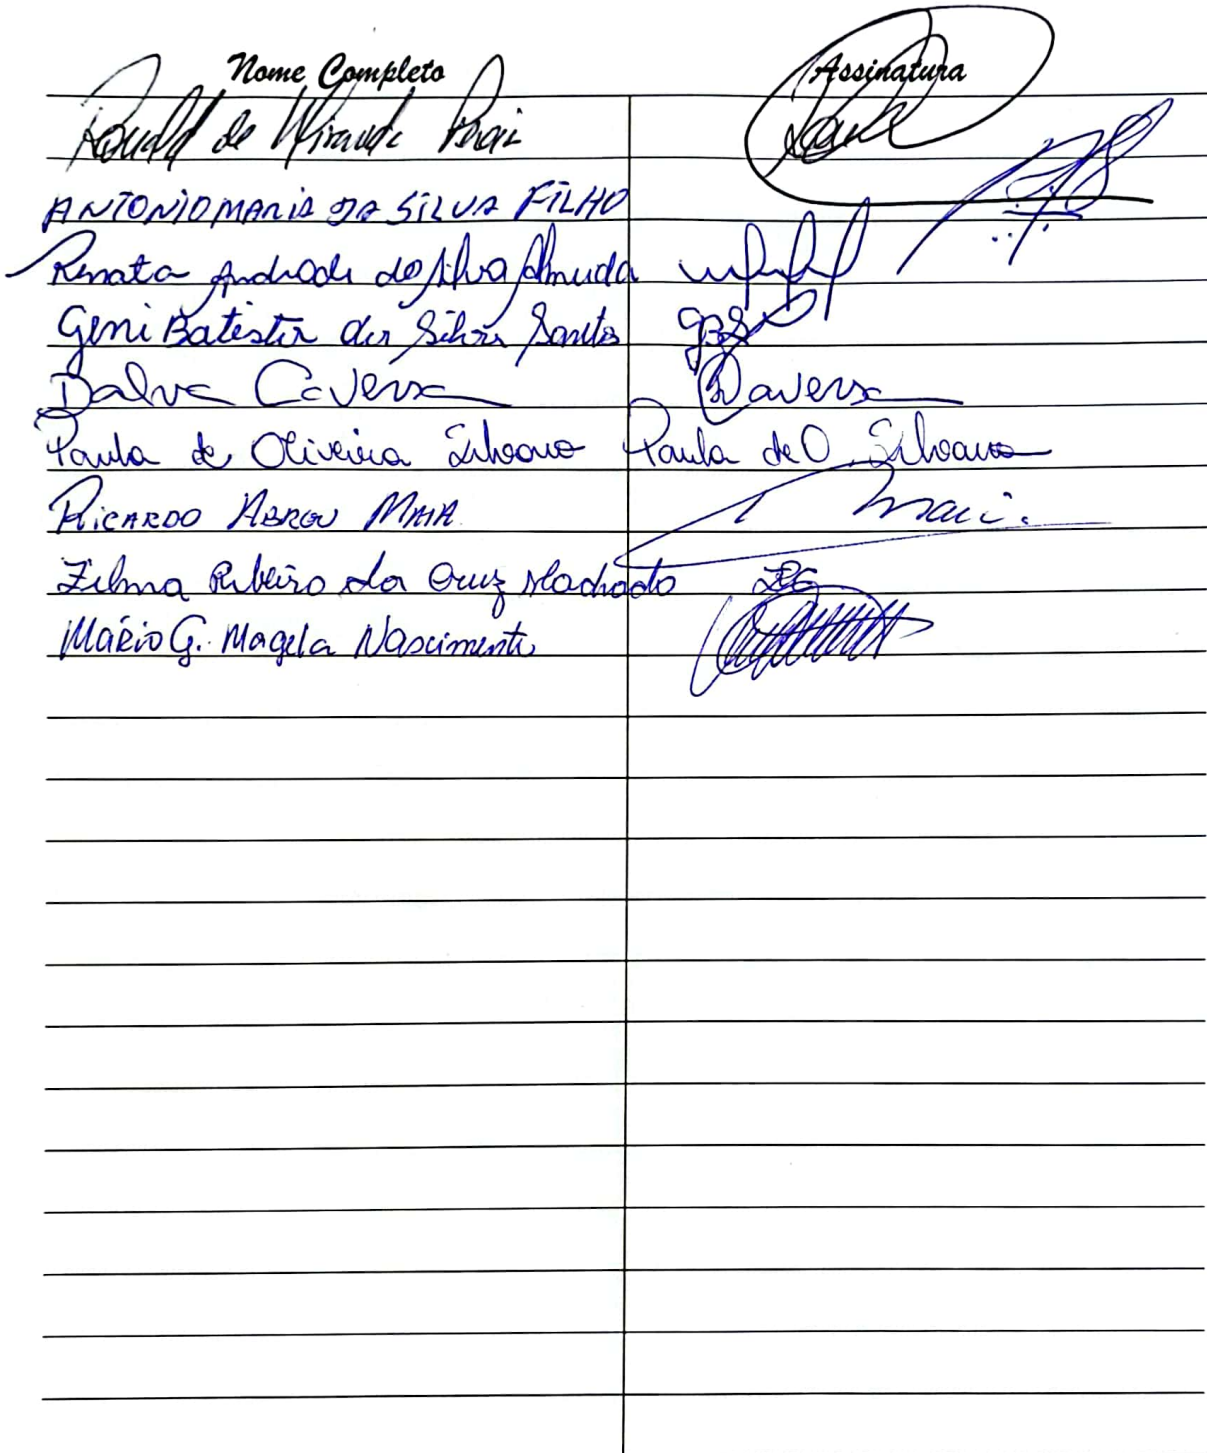 Nome Completo Assinatura
Ronald de Miranda
ANTONIO MARIA DA SILVA FILHO
Renata Andrade da Silva Almeida
Geni Batista da Silva Santos GBS
Dalva Caversa DCaversa
Paula de Oliveira Silvano Paula de O. Silvano
RICARDO ABREU MAIA Maia.
Zilma Ribeiro da Cruz Machado
Mário G. Magela Nascimento